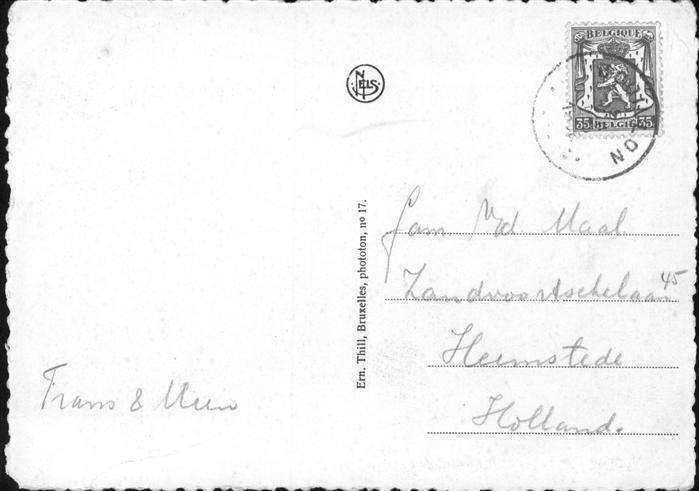 BELGIQUE
35 BELGIË 35
NELS
Ern. Thill, Bruxelles, phototon, nº 17.
Fam v/d Maal
Zandvoortschelaan 45
Heemstede
Holland.
Frans &